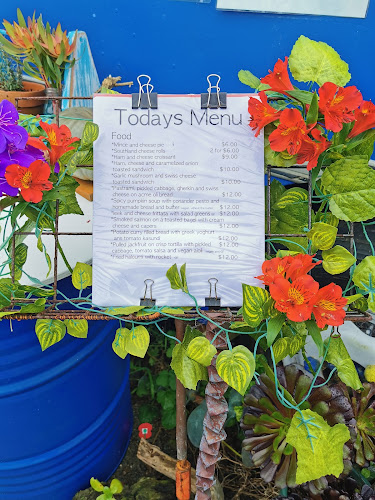 Todays Menu
Food
*Mince and cheese pie $6.00
*Southland cheese rolls 2 for $6.00
*Ham and cheese croissant $9.00
*Ham, cheese and caramelized onion
toasted sandwich $10.00
*Garlic mushroom and swiss cheese
toasted sandwich $10.00
*Pastrami, pickled cabbage, gherkin and swiss
cheese on toasted bread $12.00
pumpkin soup with coriander pesto and
homemade bread and butter $12.00
and cheese frittata with salad greens $12.00
*Smoked salmon on a toasted bagel with cream
cheese and capers $12.00
*Potato curry filled bread with Greek yoghurt
$12.00
*Pulled jackfruit on crisp tortilla with pickled
cabbage, tomato salsa and vegan aioli $12.00
with $12.00